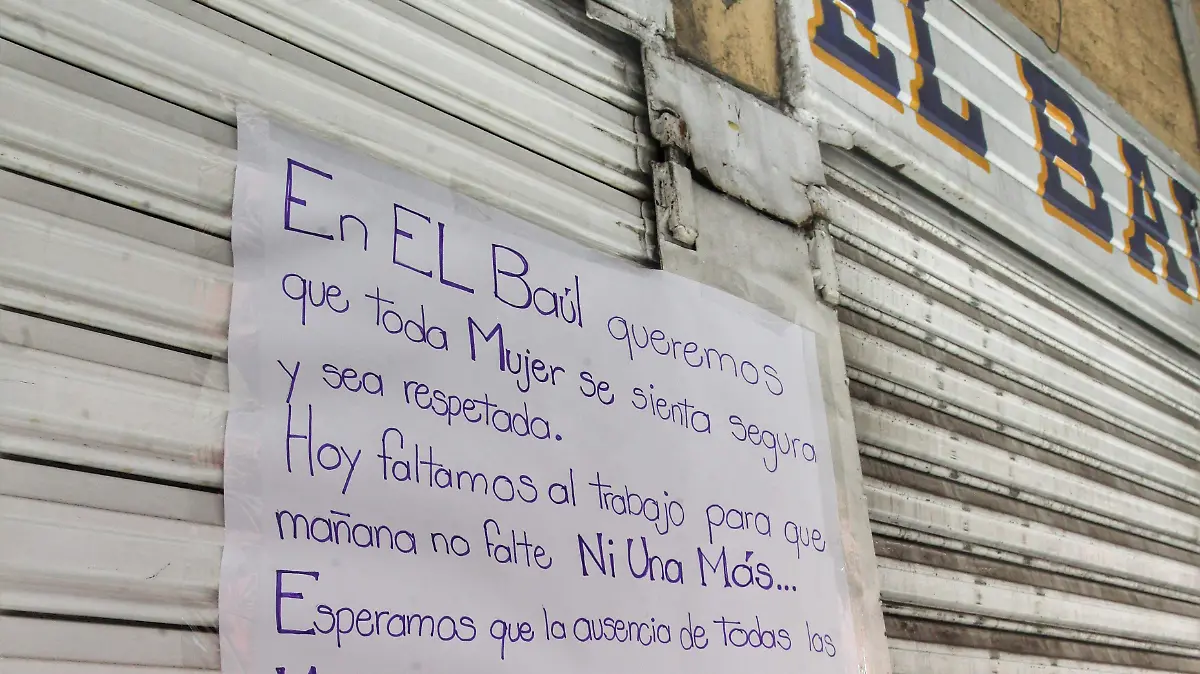 EL BA
En EL Baúl queremos
que toda Mujer se sienta segura
y sea respetada.
Hoy faltamos al trabajo para que
mañana no falte Ni Una Más...
Esperamos que la ausencia de todas las